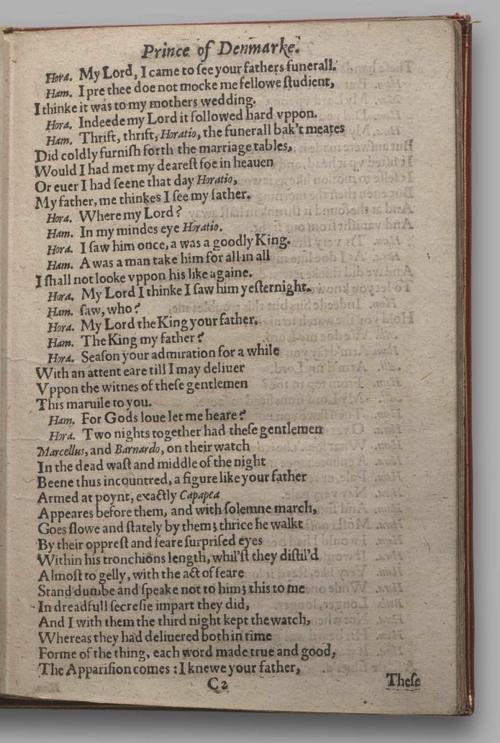 Prince of Denmarke.
Hora. My Lord, I came to see your fathers funerall.
Ham. I pre thee doe not mocke me fellowe student,
I thinke it was to my mothers wedding.
Hora. Indeede my Lord it followed hard vppon.
Ham. Thrift, thrift, Horatio, the funerall bak't meates
Did coldly furnish forth the marriage tables,
Would I had met my dearest foe in heauen
Or euer I had seene that day Horatio,
My father, me thinkes I see my father.
Hora. Where my Lord?
Ham. In my mindes eye Horatio.
Hora. I saw him once, a was a goodly King.
Ham. A was a man take him for all in all
I shall not looke vppon his like againe.
Hora. My Lord I thinke I saw him yesternight.
Ham. saw, who?
Hora. My Lord the King your father.
Ham. The King my father?
Hora. Season your admiration for a while
With an attent eare till I may deliuer
Vppon the witnes of these gentlemen
This maruile to you.
Ham. For Gods loue let me heare?
Hora. Two nights together had these gentlemen
Marcellus, and Barnardo, on their watch
In the dead wast and middle of the night
Beene thus incountred, a figure like your father
Armed at poynt, exactly Capapea
Appeares before them, and with solemne march,
Goes slowe and stately by them; thrice he walkt
By their opprest and feare surprised eyes
Within his tronchions length, whil'st they distil'd
Almost to gelly, with the act of feare
Stand dumbe and speake not to him; this to me
In dreadfull secresie impart they did,
And I with them the third night kept the watch,
Whereas they had deliuered both in time
Forme of the thing, each word made true and good,
The Apparision comes: I knewe your father,
C2
These